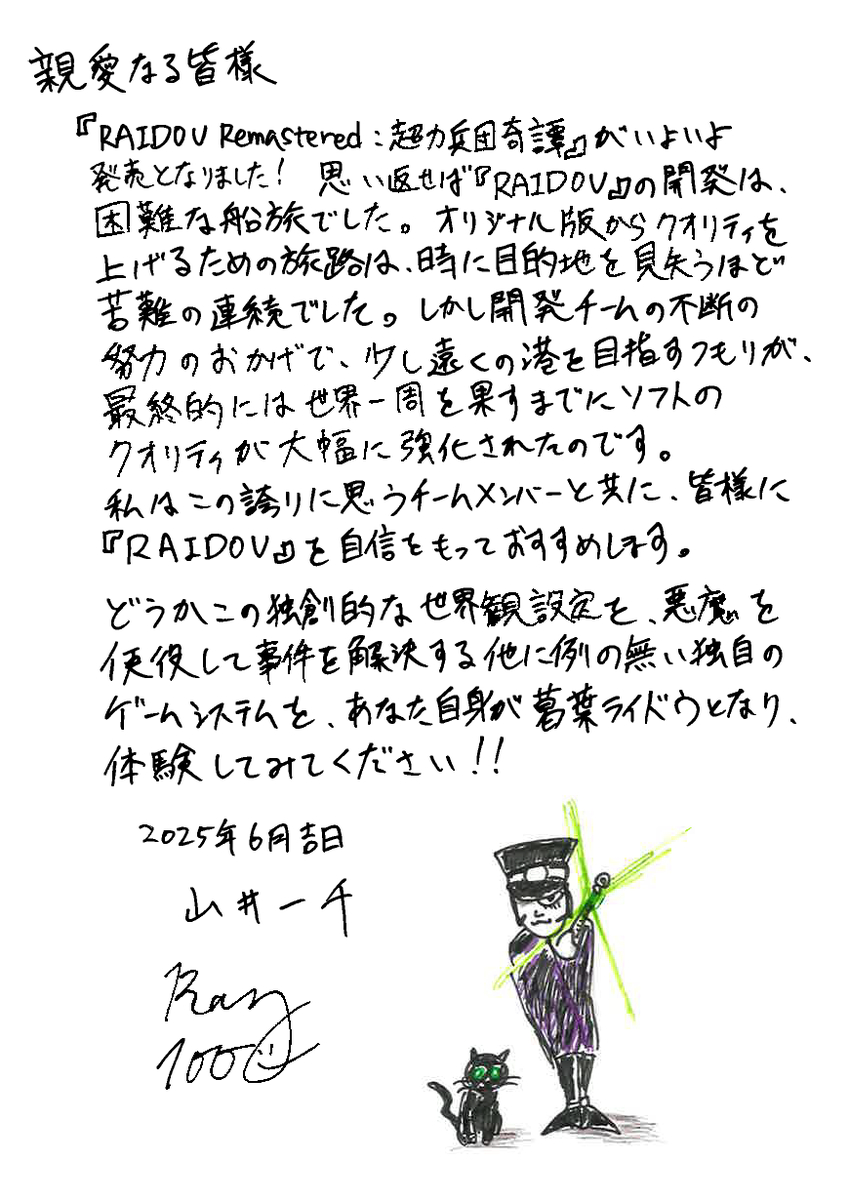 親愛なる皆様
『RAIDOU Remastered：超力兵団奇譚』がいよいよ
発売となりました！ 思い返せば『RAIDOU』の開発は、
困難な船旅でした。オリジナル版からクオリティを
上げるための旅路は、時に目的地を見失うほど
苦難の連続でした。しかし開発チームの不断の
努力のおかげで、少し遠くの港を目指すつもりが、
最終的には世界一周を果すまでにソフトの
クオリティが大幅に強化されたのです。
私はこの誇りに思うチームメンバーと共に、皆様に
『RAIDOU』を自信をもっておすすめします。
どうかこの独創的な世界観設定を、悪魔を
使役して事件を解決する他に例の無い独自の
ゲームシステムを、あなた自身が葛葉ライドウとなり、
体験してみてください！！
2025年6月吉日
山井一千
Ray
100